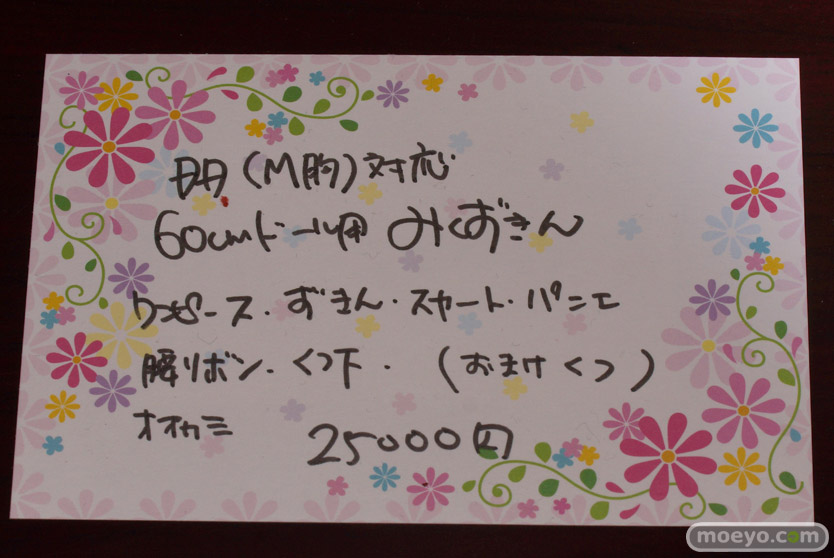 (M胸)対応
60cmドール用 みくずきん
ワンピース・ずきん・スカート・パニエ
腕リボン・くつ下・ (おまけくつ)
オオカミ
25000円
moeyo.com